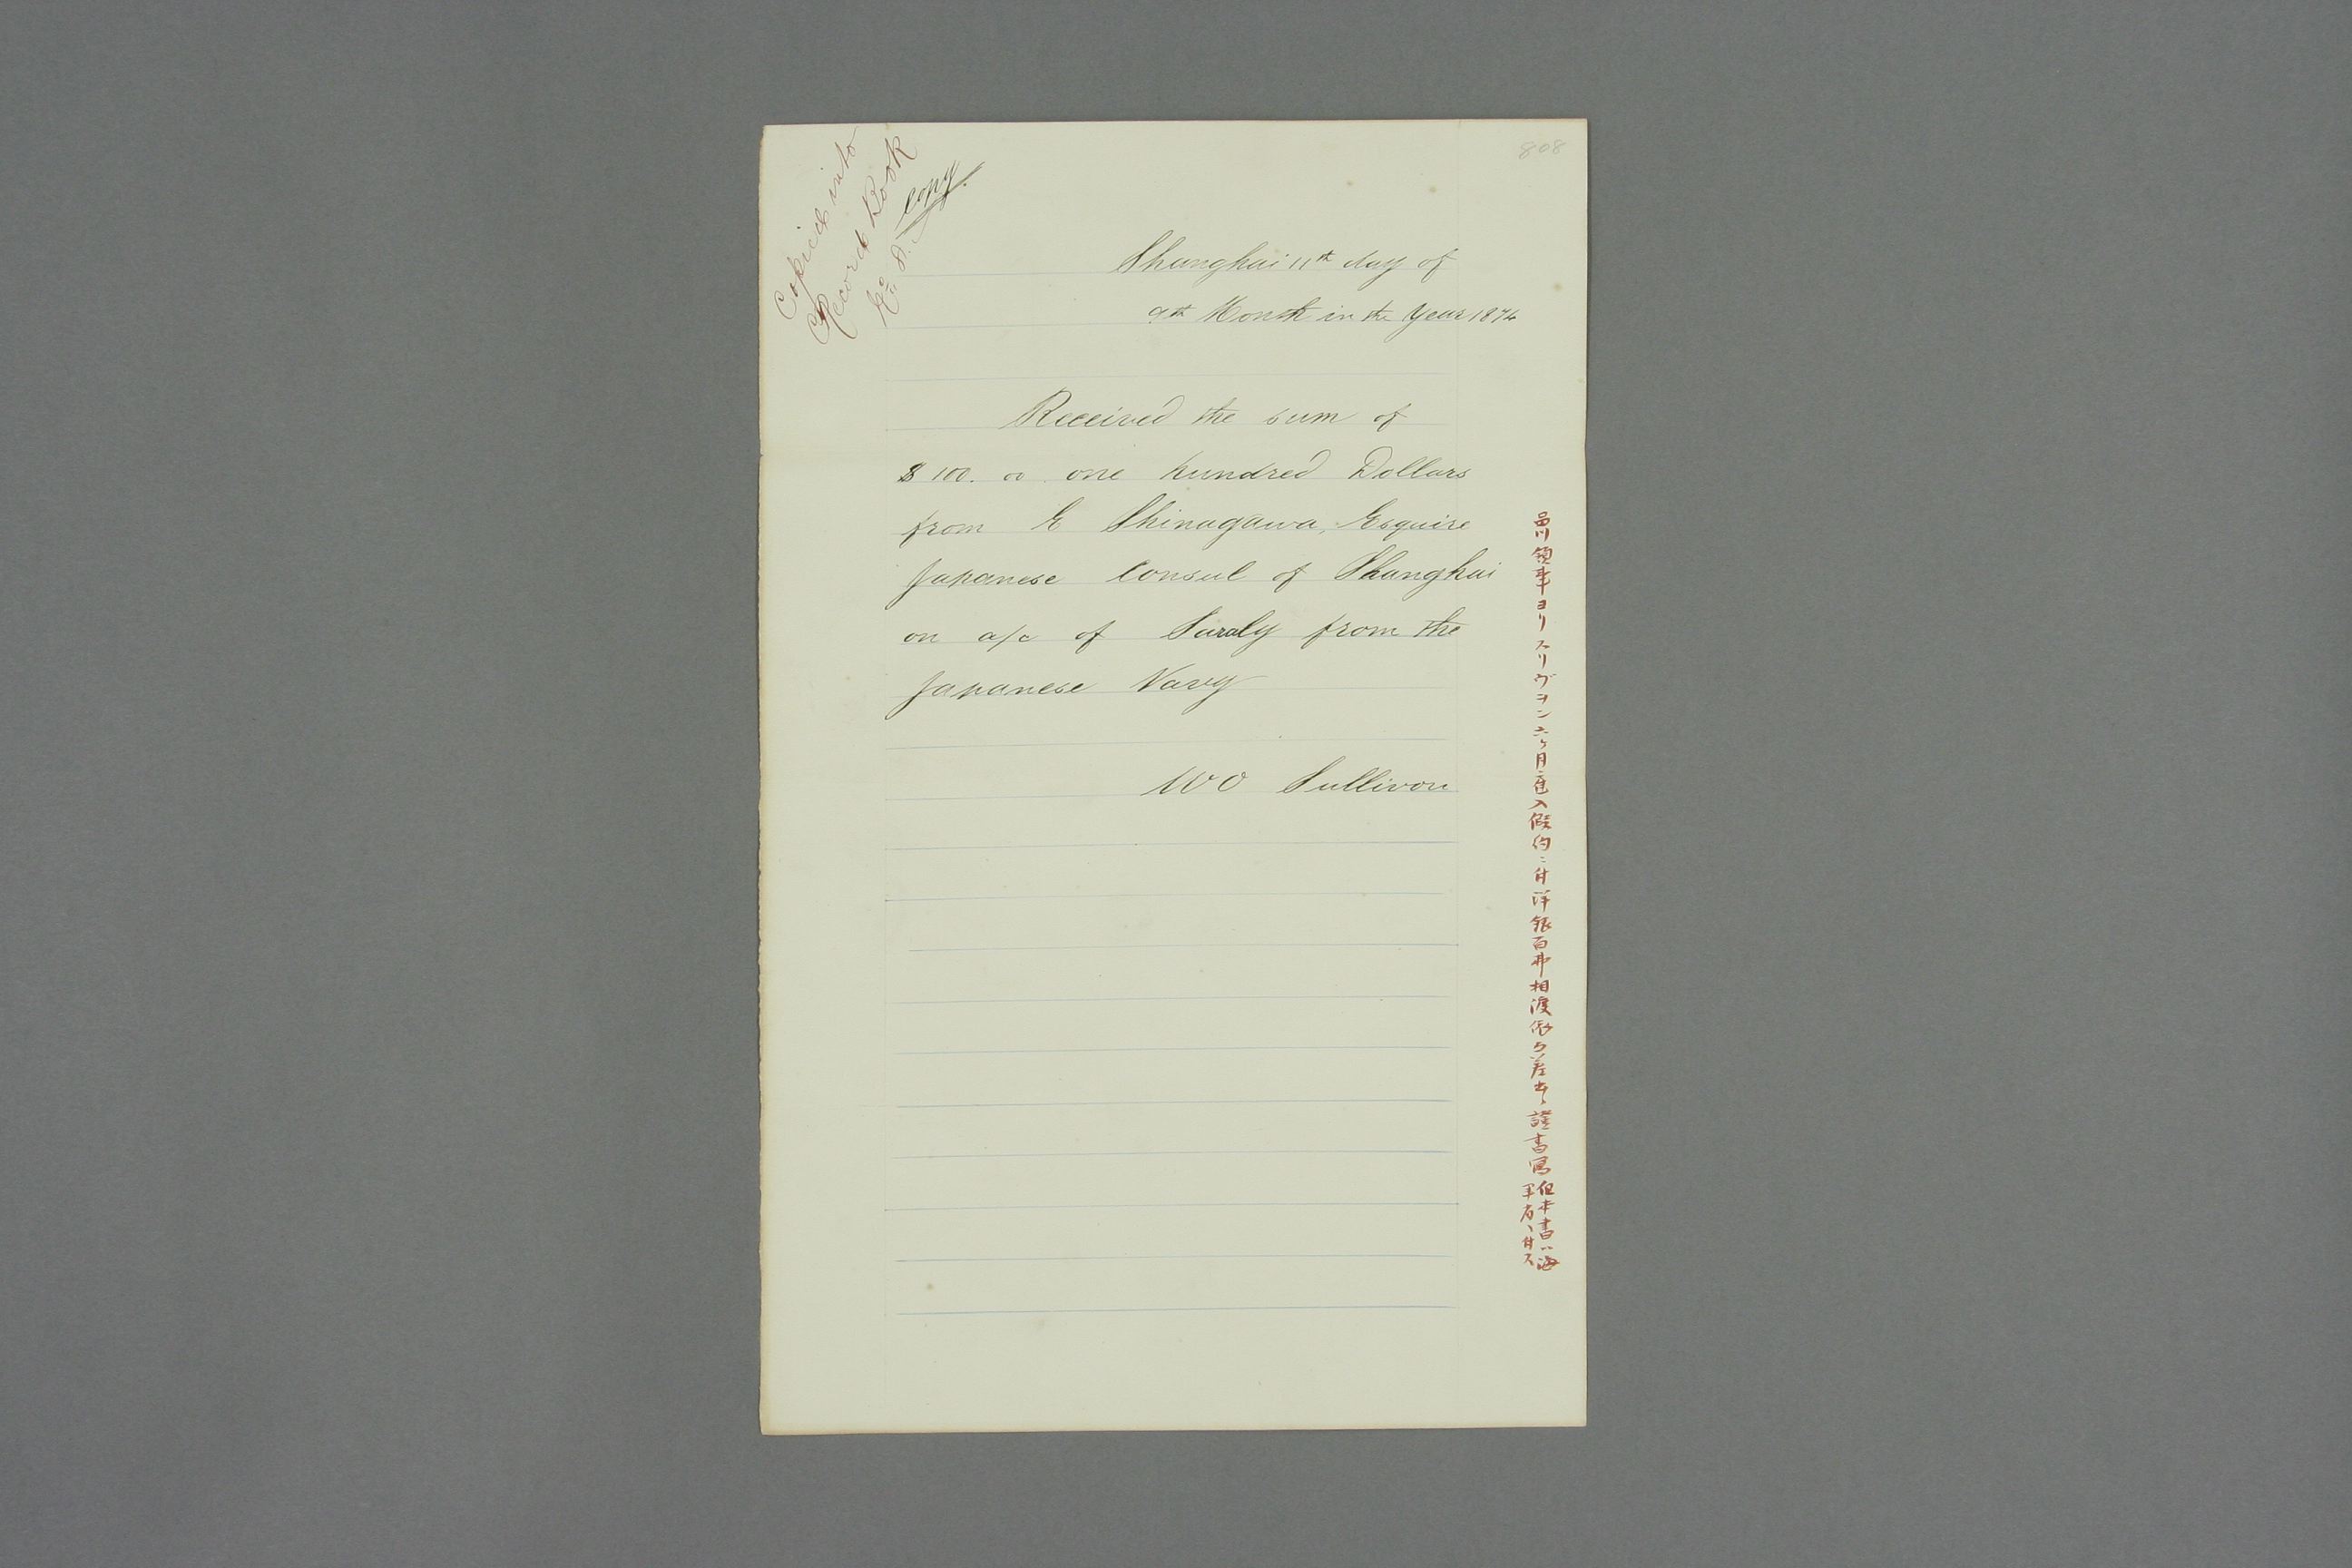 808
Copied into
Record Book
K. S.
Copy.
Shanghai 11th day of
9th Month in the Year 1874
Received the sum of
$ 100. 00 one hundred Dollars
from E Shinagawa, Esquire
Japanese Consul of Shanghai
on a/c of Saraly from the
Japanese Navy
W O Sullivon
品川領事ヨリスリヴヲン六ヶ月雇入仮約ニ付洋銀百弗相渡候ニ差出ス證書写
但本書ハ海
軍省ヘ付ス